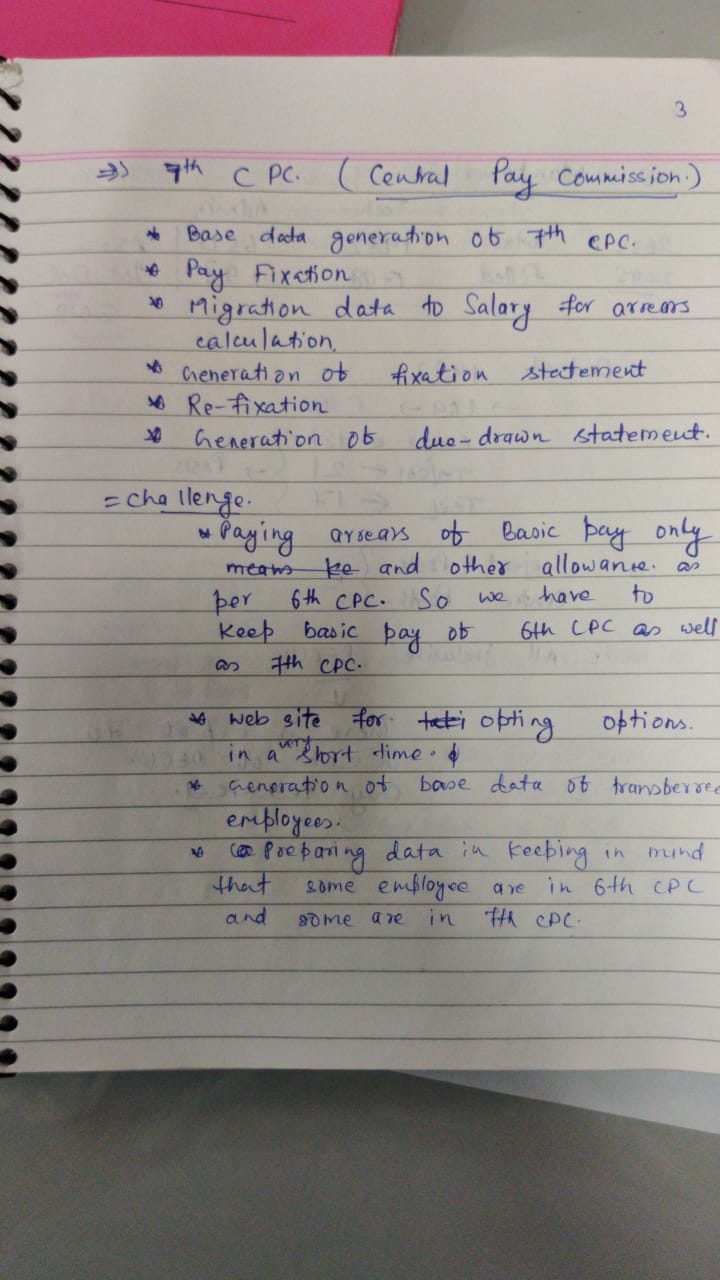 3
⇒) 7th C PC. ( Central Pay Commission.)
* Base data generation of 7th CPC.
* Pay Fixation
* Migration data to Salary for arrears
calculation.
* Generation of fixation statement
* Re-fixation
* Generation of due-drawn statement.
= Challenge.
* Paying arrears of Basic pay only
means ke and other allowance. as
per 6th CPC. So we have to
keep basic pay of 6th CPC as well
as 7th CPC.
* web site for opting options.
in a very short time.
* Generation of base data of transferree
employees.
* Preparing data in keeping in mind
that some employee are in 6th CPC
and some are in 7th CPC.